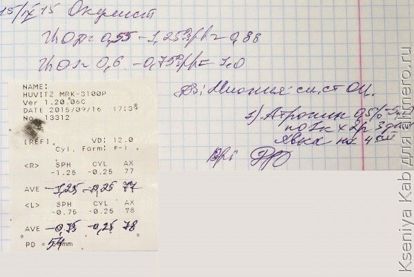 15/IX 15 Окулист
Vis OD = 0,55 -1,25 sph = 0,88
Vis OS = 0,6 -0,75 sph = 1,0
DS: Миопия сл. ст OU.
NAME:
HUVITZ MRK-3100P
Ver 1.20.06C
DATE 2015/09/16 17:35
NO. 13312
[REF] VD: 12.0
Cyl. Form: F-1
<R> SPH CYL AX
-1.25 -0.25 77
AVE -1,25 -0,25 77
<L> SPH CYL AX
-0.75 -0.25 76
AVE -0,75 -0,25 78
PD = 54 mm
1) Атропин 0,5%
по 1к х 2р 3 дня
Явка на 4
Врг
Kseniya Kab для irkmero.ru